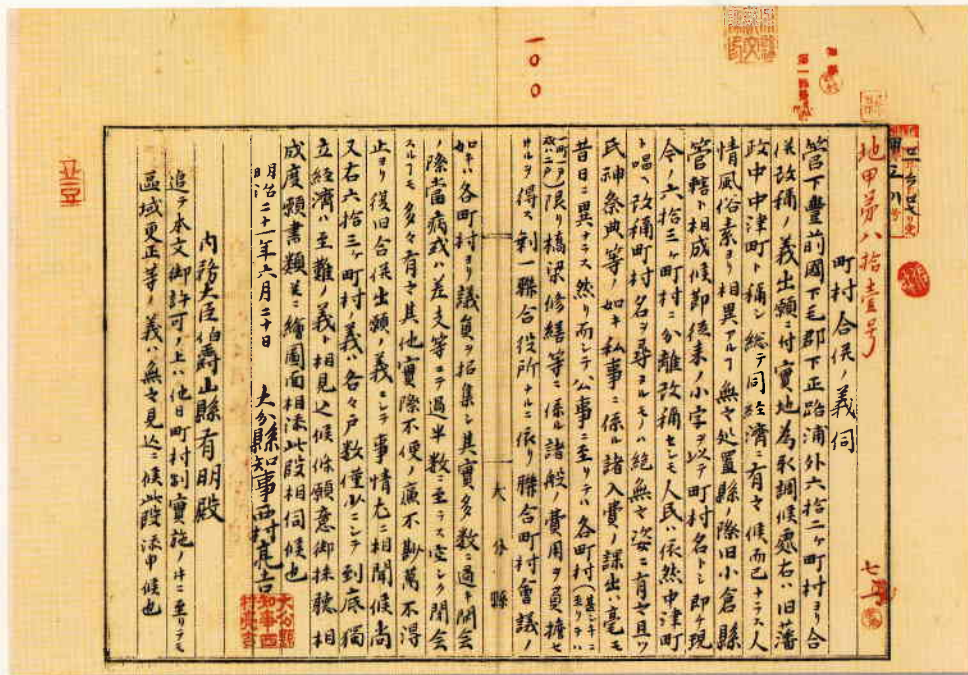 一〇〇
地甲第八拾壹号
町村合併ノ義伺
管下豊前國下毛郡下正路浦外六拾二ヶ町村ヨリ合
併改称ノ義出願ニ付實地為取調候處右ハ旧藩
政中中津町ト称シ総テ同経濟ニ有之候而已ナラス人
情風俗素ヨリ相異アルフ無之処置縣ノ際旧小倉縣
管轄ト相成候節従来ノ小字ヲ以テ町村名トシ即チ現
今ノ六拾三ヶ町村ニ分離改称セシモ人民ハ依然中津町
ト唱ヘ改称町村名ヲ尋ヌルモノハ絶無之姿ニ有之且ツ
氏神祭典等ノ如キ私事ニ係ル諸入費ノ課出ハ毫モ
昔日ニ異ナラス然リ而シテ公事ニ至リテハ各町村
限リ橋梁修繕等ニ係ル諸般ノ費用ヲ負擔セ
サルヲ得ス剰一聯合役所ナルニ依リ聯合町村會議ノ
大分縣
如キハ各町村ヨリ議員ヲ招集シ其實多数ニ過キ開会
ノ際當病或ハ差支等ニテ過半数ニ至ラス空シク閉会
スルフモ多々有之其他實際不便ノ廉不尠萬不得
止ヨリ復旧合併出願ノ義ニシテ事情尤ニ相聞候尚
又右六拾三ヶ町村ノ義ハ各々戸数僅少ニシテ到底獨
立経濟ハ至難ノ義ト相見込候條願意御採聴相
成度願書類並ニ繪圖面相添此段相伺候也
明治二十一年六月二十日 大分縣知事西村亮吉
大分縣知事西村亮吉
内務大臣伯爵山縣有朋殿
追テ本文御許可ノ上ハ他日町村制實施ノ
区域更正等ノ義ハ無之見込ニ候此段添申候也